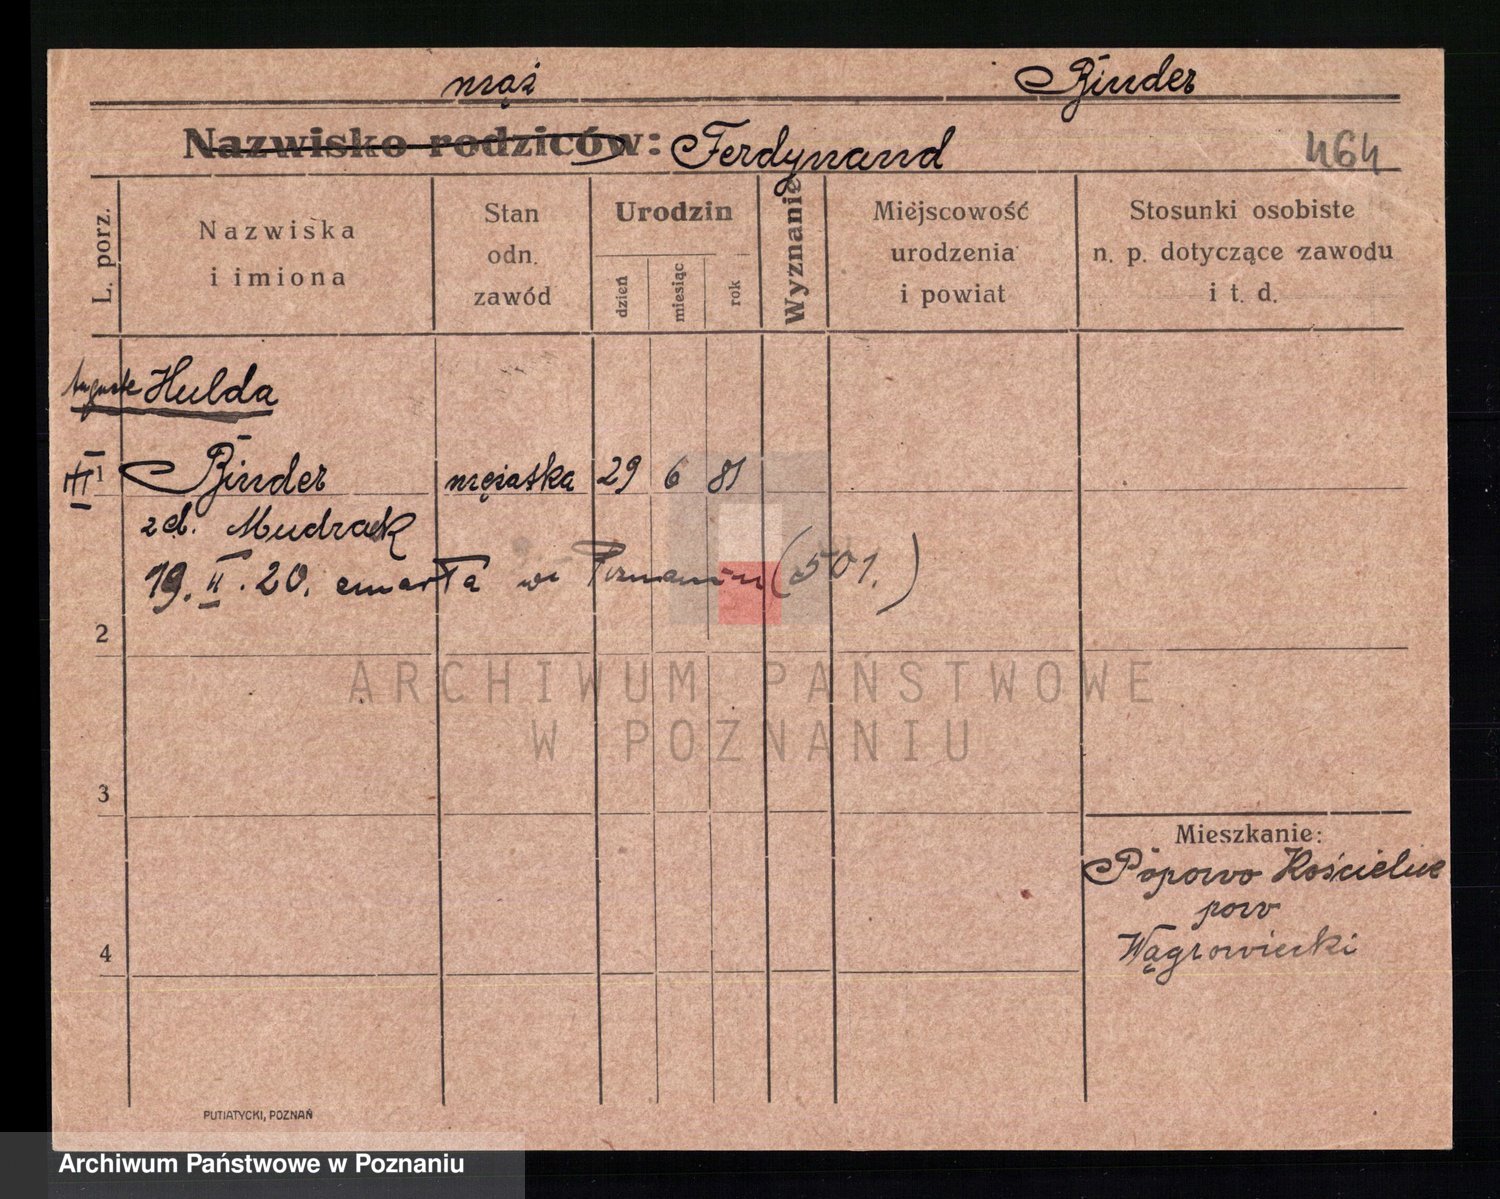 mąż Binder
Nazwisko rodziców: Ferdynand 464
L. porz.
Nazwiska i imiona
Stan odn. zawód
Urodzin
dzień miesiąc rok
Wyznanie
Miejscowość urodzenia i powiat
Stosunki osobiste n. p. dotyczące zawodu i t. d.
Auguste Hulda
III 1 Binder mężatka 29 6 81
zd. Mudrak
19. II. 20. zmarła w Poznaniu (501.)
2
3
4
Mieszkanie:
Popowo Kościelne
pow
Wągrowiecki
PUTIATYCKI, POZNAŃ
ARCHIWUM PAŃSTWOWE
W POZNANIU
Archiwum Państwowe w Poznaniu